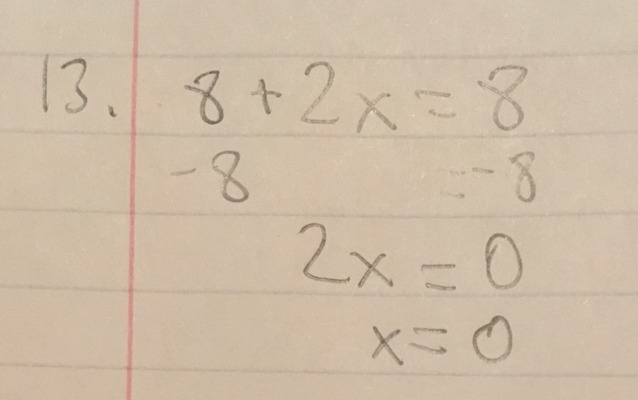 13. 8 + 2x = 8
-8 = -8
2x = 0
x = 0